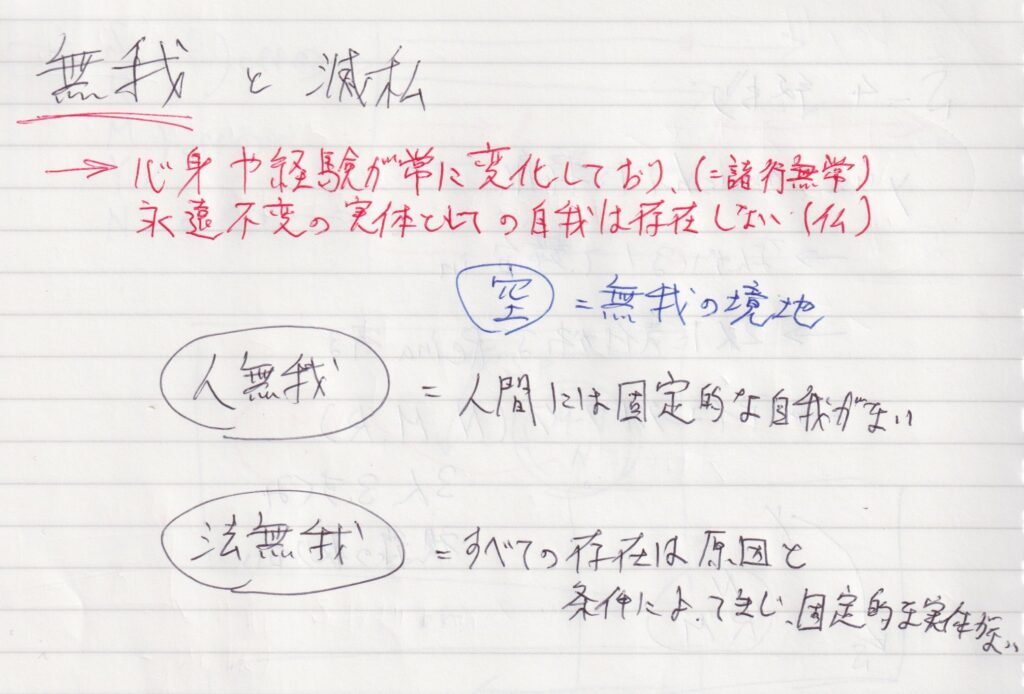 無我 と 滅私
→ 心身や経験が常に変化しており、(=諸行無常)
永遠不変の実体としての自我は存在しない (仏)
空 = 無我の境地
人無我 = 人間には固定的な自我がない
法無我 = すべての存在は原因と
条件によって生じ、固定的な実体がない